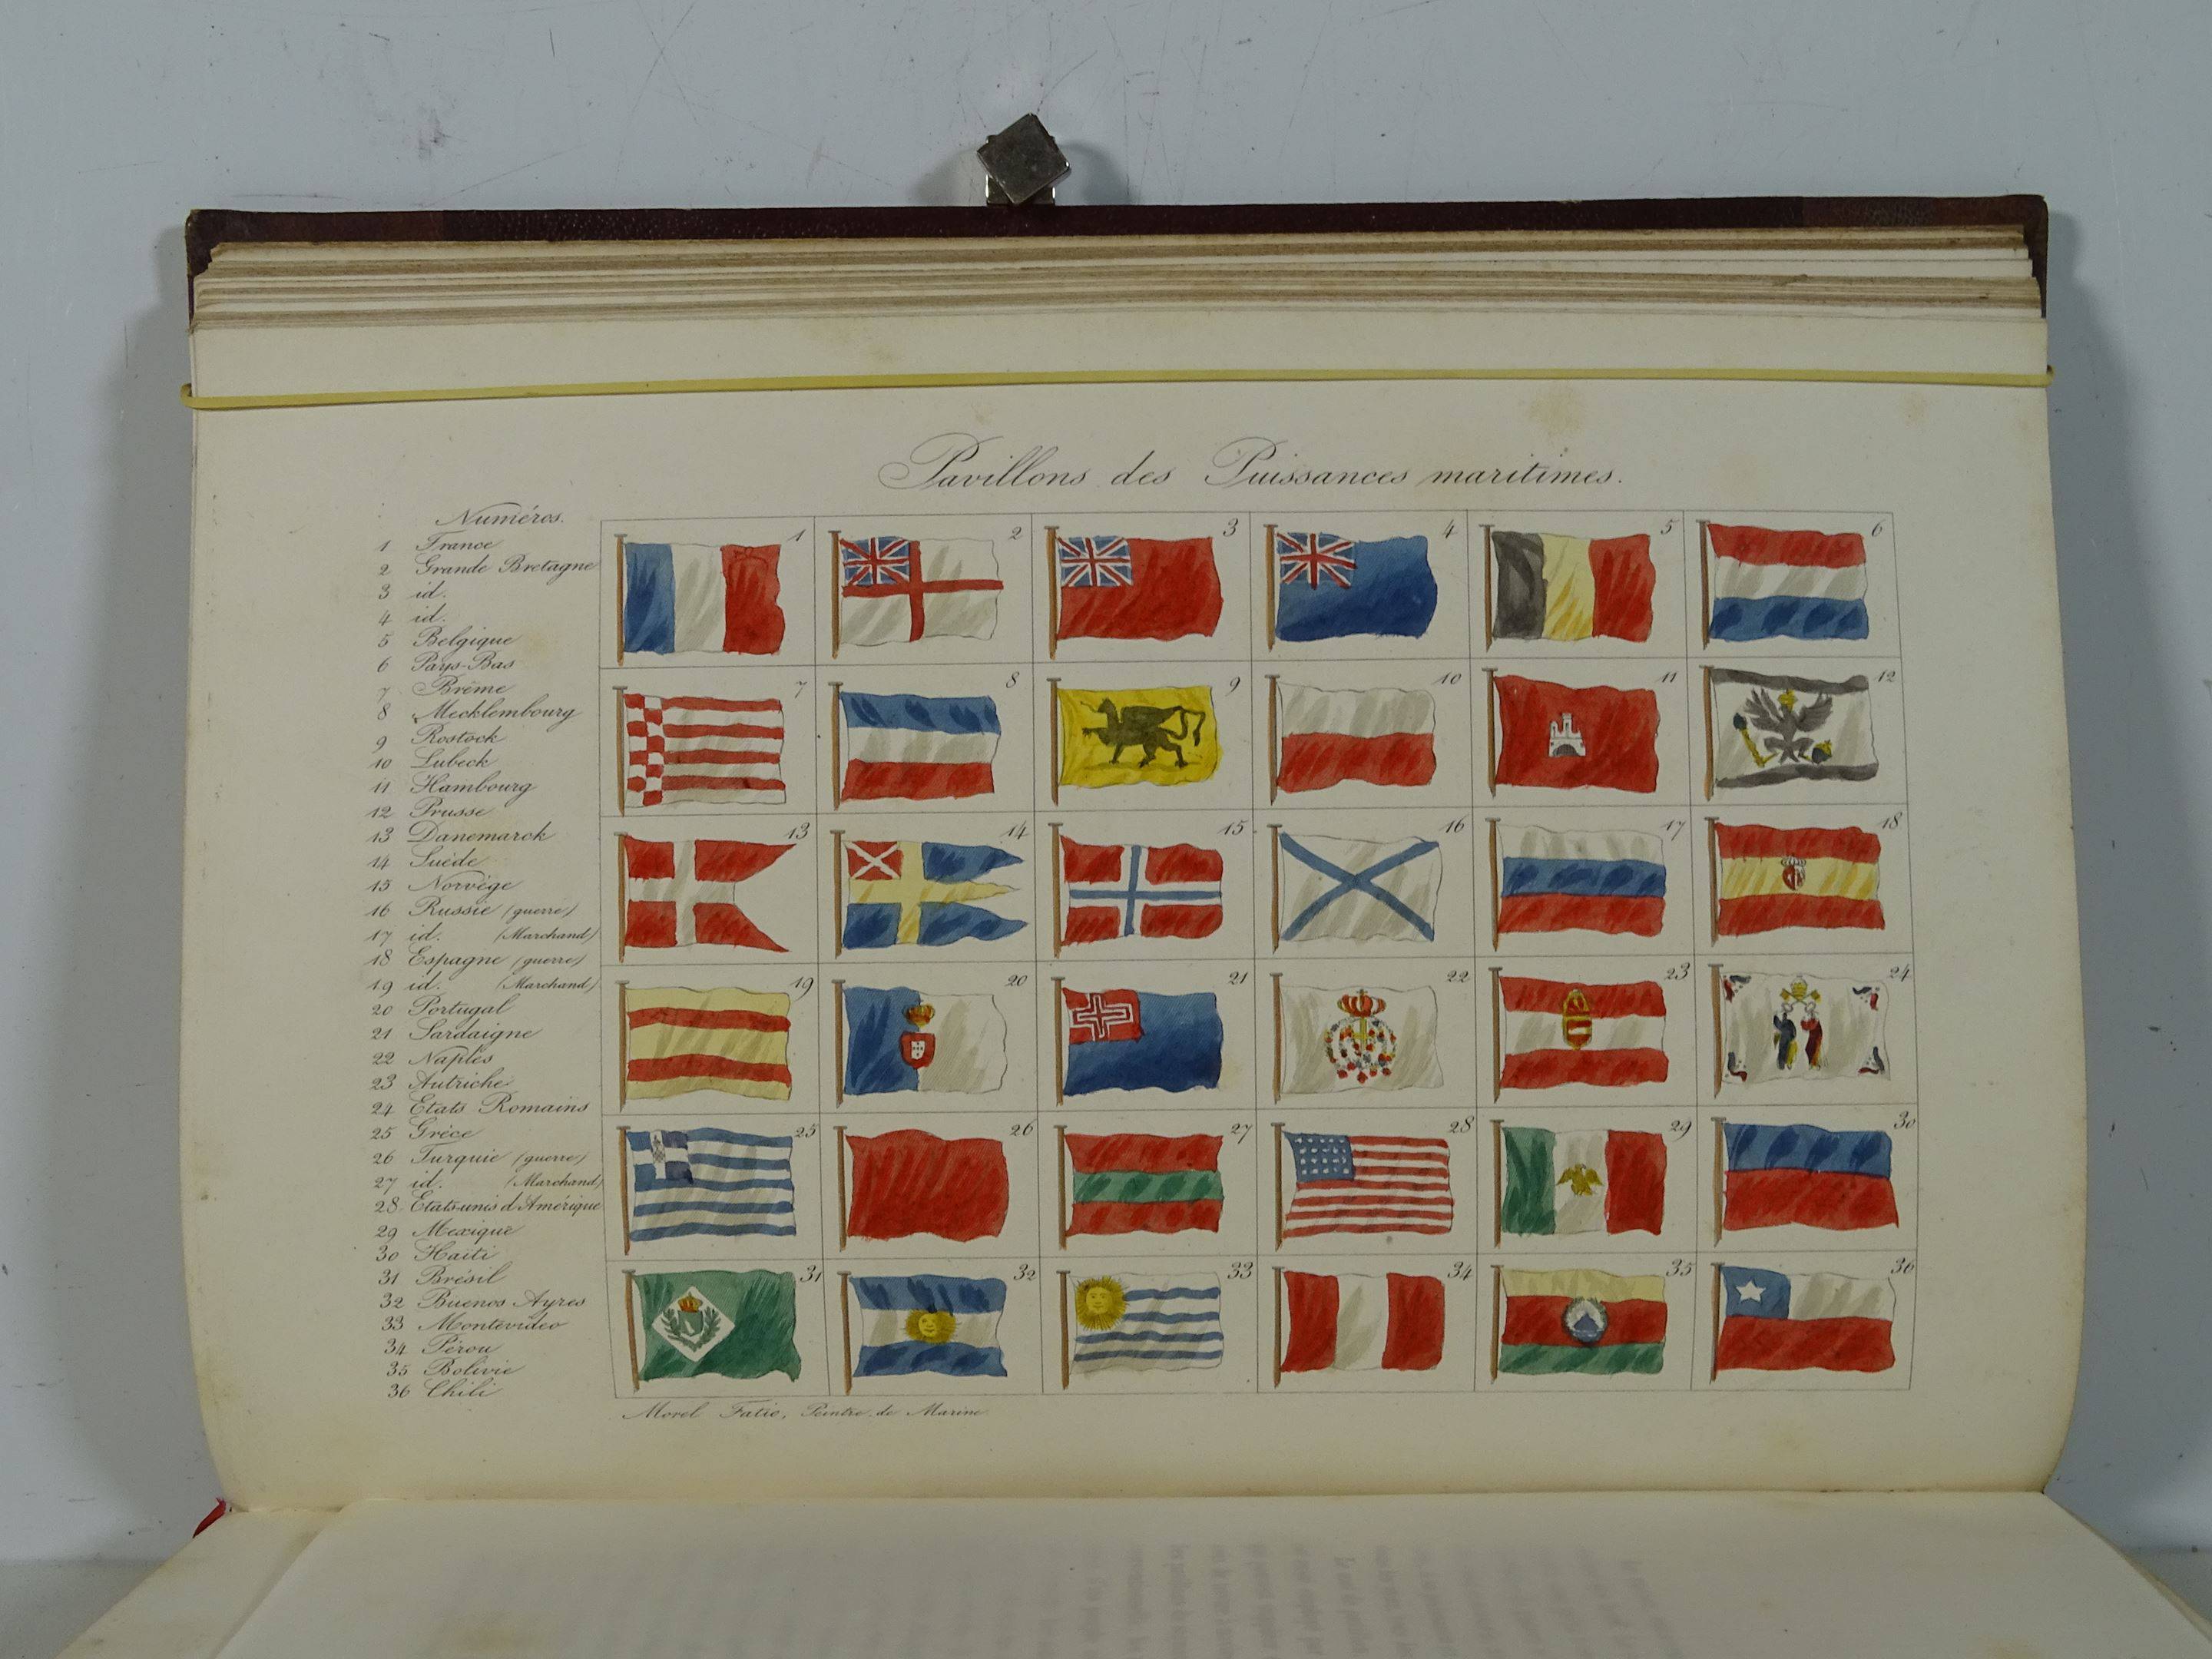 Pavillons des Puissances maritimes.
Numéros.
1 France
2 Grande Bretagne
3 id.
4 id.
5 Belgique
6 Pays-Bas
7 Brême
8 Mecklembourg
9 Rostock
10 Lubeck
11 Hambourg
12 Prusse
13 Danemarck
14 Suéde
15 Norvège
16 Russie (guerre)
17 id. (Marchand)
18 Espagne (guerre)
19 id. (Marchand)
20 Portugal
21 Sardaigne
22 Naples
23 Autriche
24 Etats Romains
25 Grèce
26 Turquie (guerre)
27 id. (Marchand)
28 Etats-unis d'Amérique
29 Mexique
30 Haïti
31 Brésil
32 Buenos Ayres
33 Montevideo
34 Pérou
35 Bolivie
36 Chili
1 2 3 4 5 6
7 8 9 10 11 12
13 14 15 16 17 18
19 20 21 22 23 24
25 26 27 28 29 30
31 32 33 34 35 36
Morel Fatio, Peintre de Marine